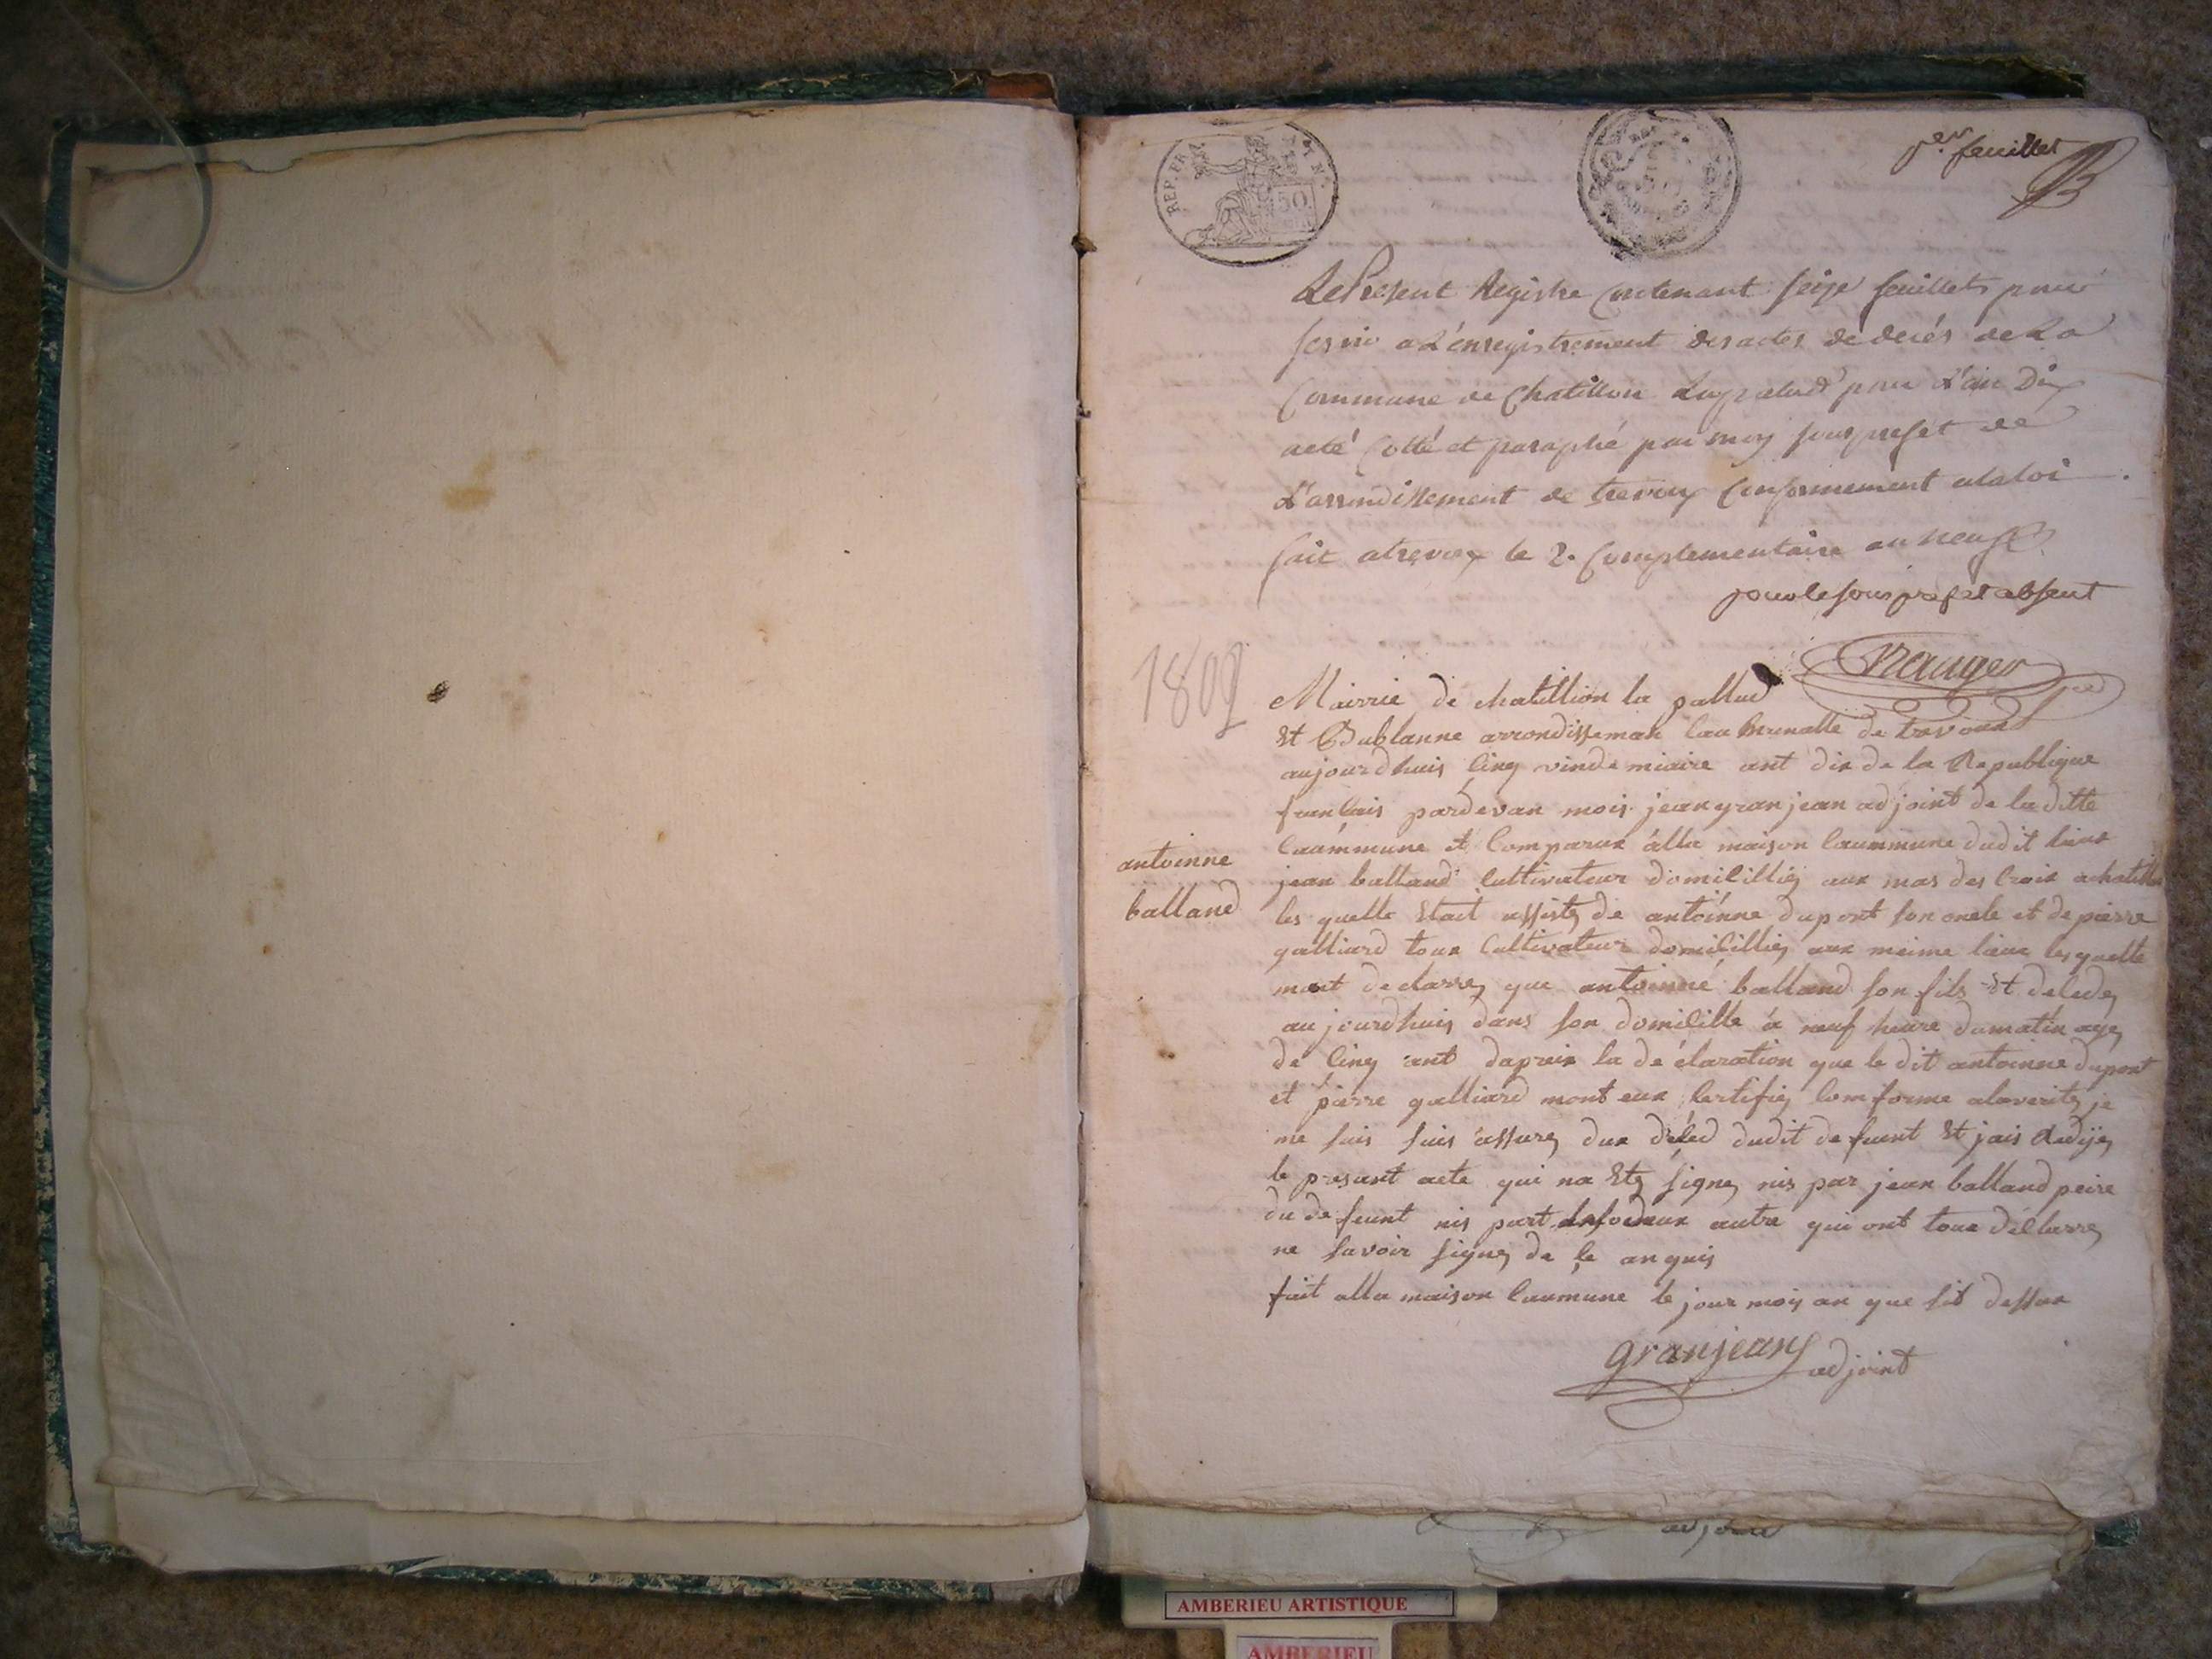 REP. FRA
50
1er feuillet
Le Present Registre contenant seize feuillets pour
servir a L'enregistrement des actes de decés de La
Commune de Chatillon Lapalud pour L'an Dix
a eté Cotté et paraphé par moy sousprefet de
L'arrondissement de trevoux Conformement a la loi
fait a trevoux le 2e Complementaire an neuf
pour le sous prefet absent
1802
Mairrie de chatillion la pallud
Et Bublanne arrondissemak Caumunalle de trevoux
aujourdhuis Cinq vindemiaire ant dix de la Republique
francais pardevan mois jean granjean adjoint de la ditte
Caummune et Comparux alla maison Caummune dudit lieux
antoinne
balland
jean balland Cultivateur domicilliez aux mas des Croix a chatillon
les quelle Etait assistez de antoinne dupont son oncle et de pierre
galliard toux Cultivateur domicilliez aux meime lieux lesquelle
mont declarrez que antoinne balland son fils Et decedez
aujourdhuis dans son domicille a neuf heure dumatin agez
de Cinq ant dapreix la declaration que le dit antoinne dupont
et pierre galliard mont eux Certifiez Comforme alaveritez je
me suis suis assurez dux deced dudit defuent Et jais Redijez
le presant acte qui na Etez signez nis par jean balland peire
du defuent nis part les deux autre qui ont toux declarrez
ne savoir signez de ce anquis
fait alla maison Caumune le jour mois an que sit dessux
granjean adjoint
adjoint
AMBERIEU ARTISTIQUE
AMBERIEU